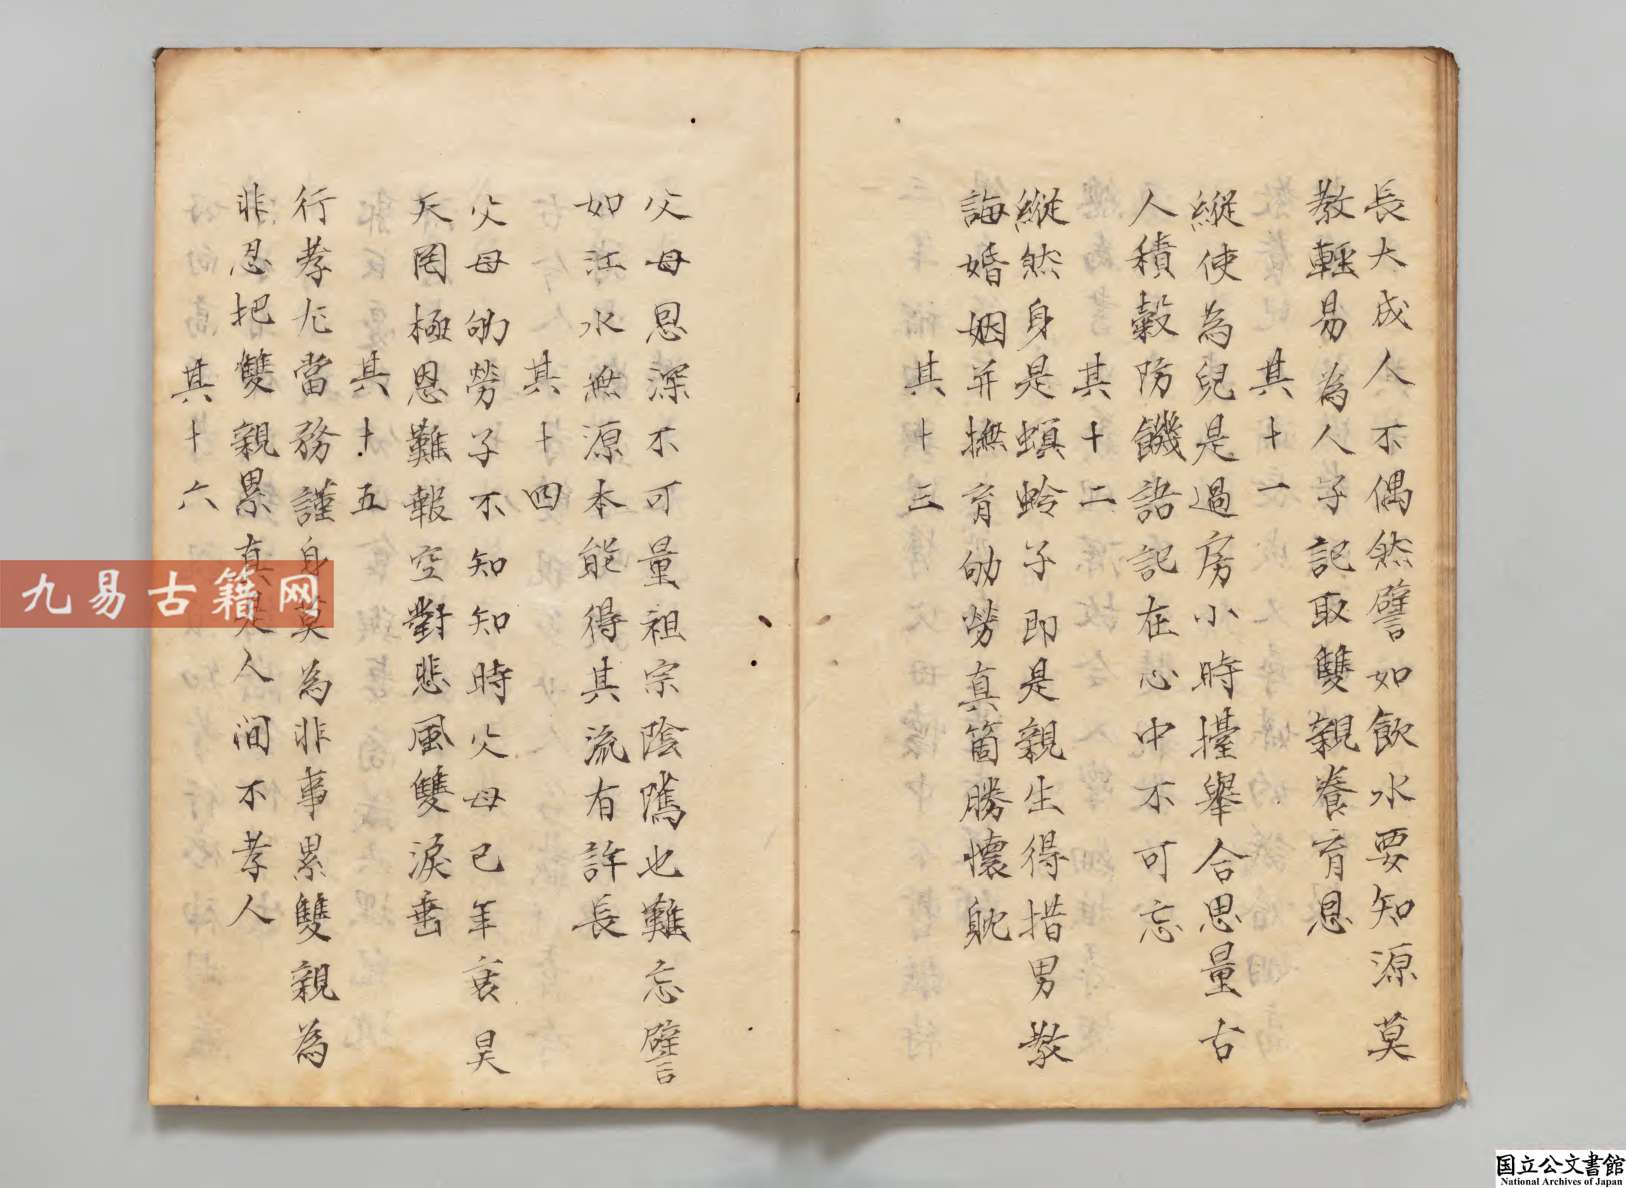 長大成人不偶然譬如飲水要知源莫
教輕易為人子記取雙親養育恩
其十一
縱使為兒是過房小時擡舉合思量古
人積穀防饑語記在心中不可忘
其十二
縱然身是螟蛉子即是親生得惜男教
誨婚姻并撫育劬勞真箇勝懷躭
其十三
父母恩深不可量祖宗陰隲也難忘譬
如江水無源本能得其流有許長
其十四
父母劬勞子不知知時父母已年衰昊
天罔極恩難報空對悲風雙淚垂
其十五
行孝尤當務謹身莫為非事累雙親為
非忍把雙親累真是人間不孝人
其十六
九易古籍网
国立公文書館
National Archives of Japan